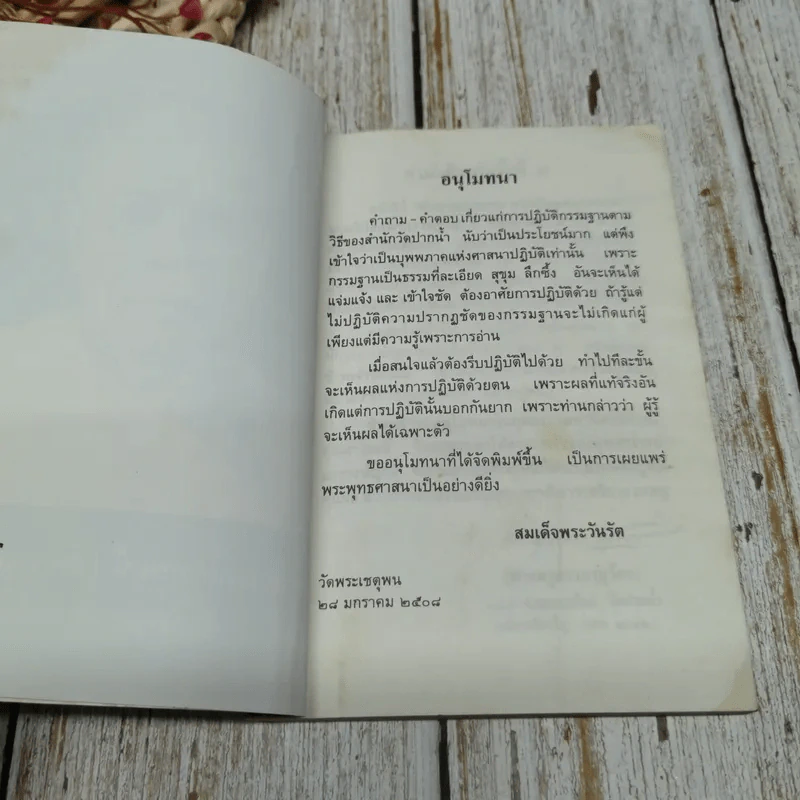 อนุโมทนา
คำถาม - คำตอบ เกี่ยวแก่การปฏิบัติกรรมฐานตาม
วิธีของสำนักวัดปากน้ำ นับว่าเป็นประโยชน์มาก แต่พึง
เข้าใจว่าเป็นบุพพภาคแห่งศาสนาปฏิบัติเท่านั้น เพราะ
กรรมฐานเป็นธรรมที่ละเอียด สุขุม ลึกซึ้ง อันจะเห็นได้
แจ่มแจ้ง และ เข้าใจชัด ต้องอาศัยการปฏิบัติด้วย ถ้ารู้แต่
ไม่ปฏิบัติความปรากฏชัดของกรรมฐานจะไม่เกิดแก่ผู้
เพียงแต่มีความรู้เพราะการอ่าน
เมื่อสนใจแล้วต้องรีบปฏิบัติไปด้วย ทำไปทีละขั้น
จะเห็นผลแห่งการปฏิบัติด้วยตน เพราะผลที่แท้จริงอัน
เกิดแต่การปฏิบัตินั้นบอกกันยาก เพราะท่านกล่าวว่า ผู้รู้
จะเห็นผลได้เฉพาะตัว
ขออนุโมทนาที่ได้จัดพิมพ์ขึ้น เป็นการเผยแพร่
พระพุทธศาสนาเป็นอย่างดียิ่ง
สมเด็จพระวันรัต
วัดพระเชตุพน
๒๘ มกราคม ๒๕๐๘